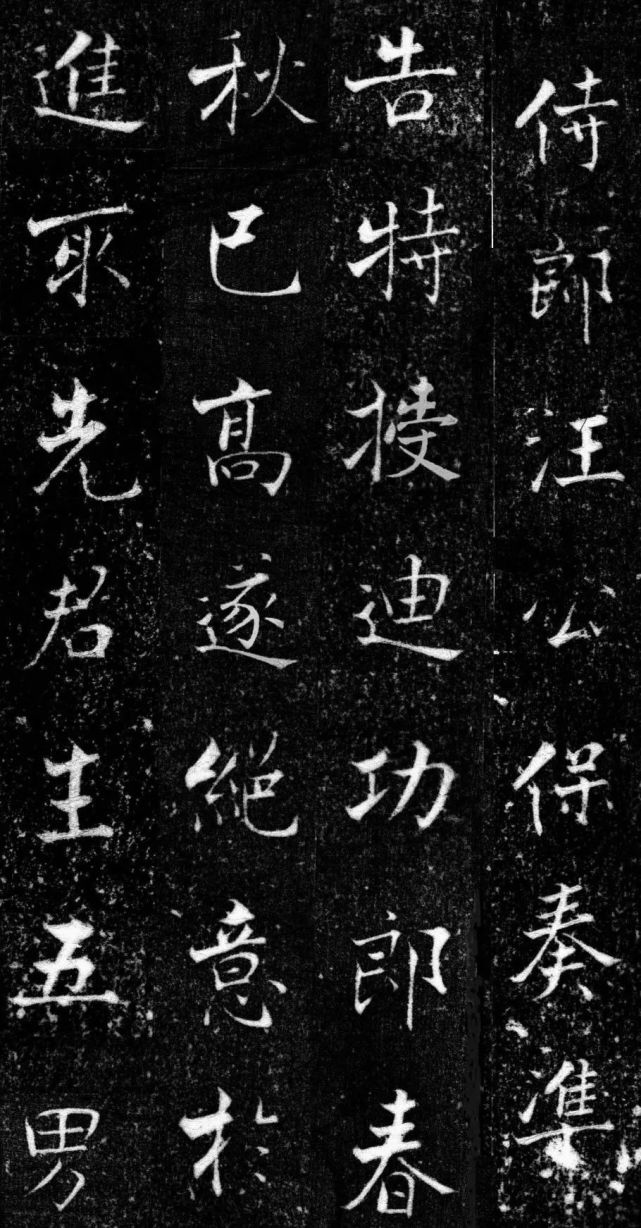 侍郎汪公保奏準
告特授迪功郎春
秋已高遂絶意於
進取先君生五男